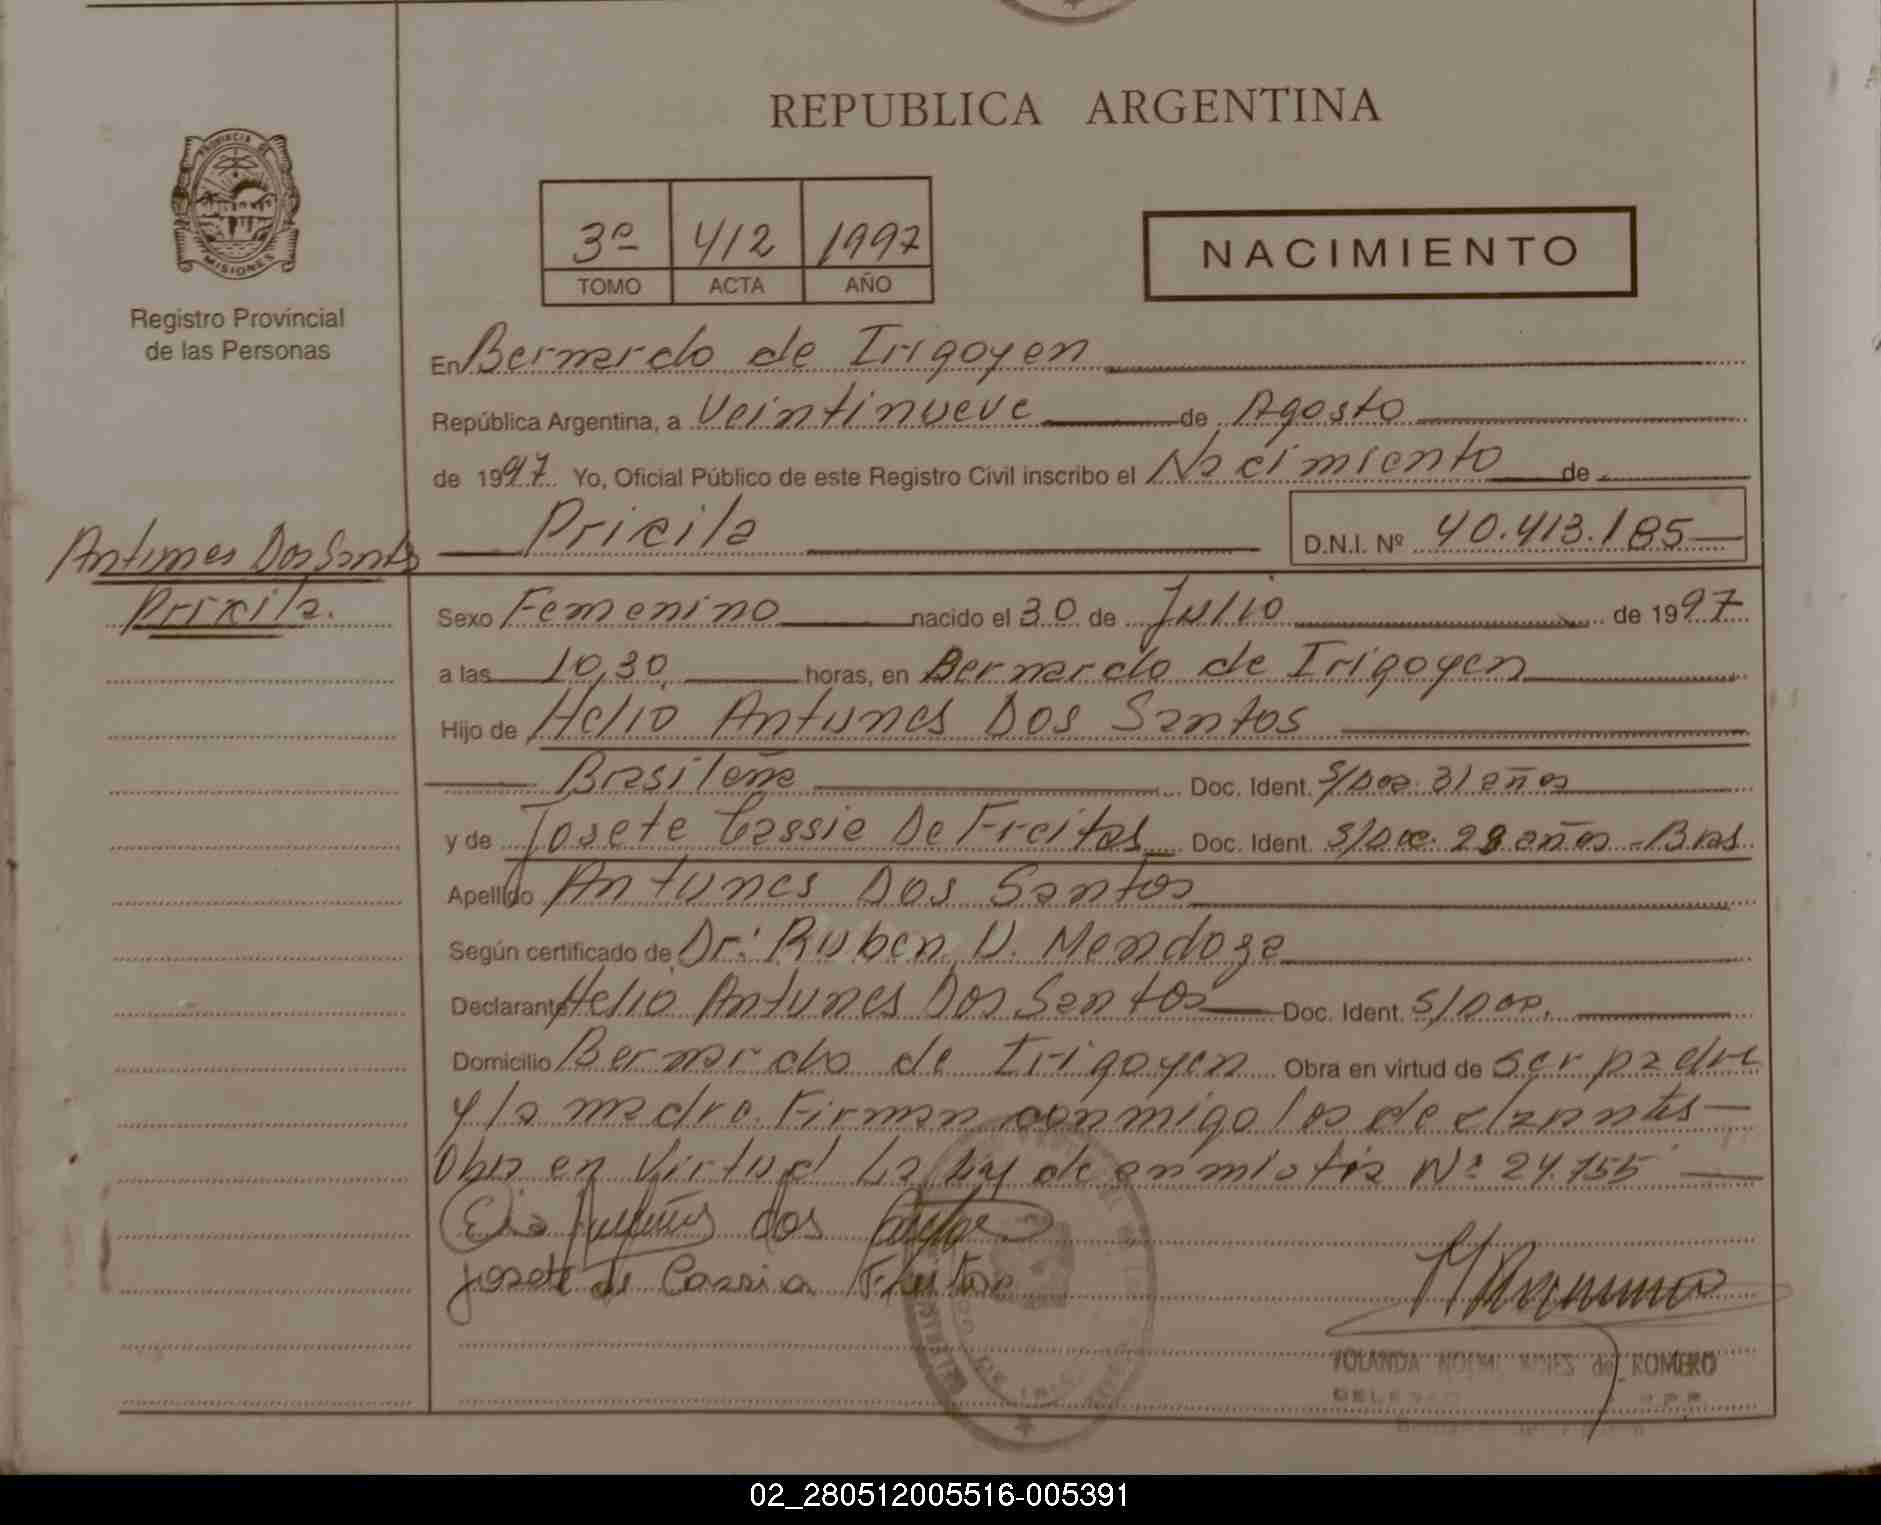 REPUBLICA ARGENTINA
PROVINCIA DE
MISIONES
Registro Provincial
de las Personas
3º 412 1997
TOMO ACTA AÑO
NACIMIENTO
En Bernardo de Irigoyen
República Argentina, a Veintinueve de Agosto
de 1997. Yo, Oficial Público de este Registro Civil inscribo el Nacimiento de
Pricila D.N.I. Nº 40.413.185
Antunes Dos Santos
Pricila.
Sexo Femenino nacido el 30 de Julio de 1997
a las 10,30, horas, en Bernardo de Irigoyen
Hijo de Helio Antunes Dos Santos
Brasileña Doc. Ident. S/Doc. 31 años
y de Josete Cassia De Freitas Doc. Ident. S/Doc. 28 años - Bras.
Apellido Antunes Dos Santos
Según certificado de Dr: Ruben V. Mendoza
Declarante Helio Antunes Dos Santos Doc. Ident. S/Doc.
Domicilio Bernardo de Irigoyen Obra en virtud de ser padre
y la madre. Firman conmigo los declarantes
Obra en virtud La Ley de anmistia Nº 24.755
dos
Josete de Cassia Freitas
YOLANDA NOEMI de ROMERO
02_280512005516-005391